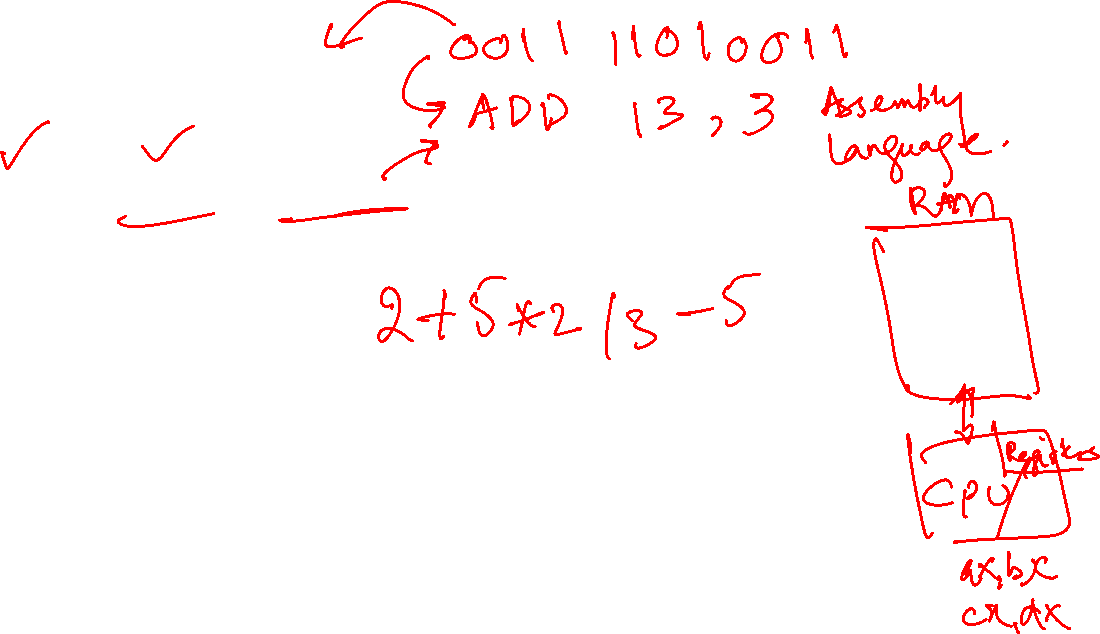 0011 11010011
ADD 13, 3 Assembly
language.
RAM
2+5*2/3-5
Registers
CPU
ax, bx
cx, dx